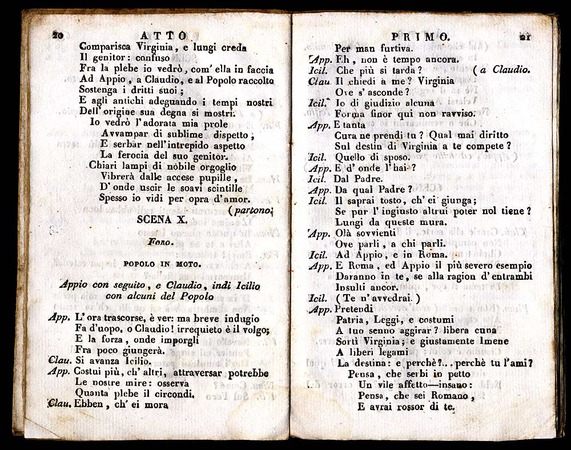 20 ATTO
Comparisca Virginia, e lungi creda
Il genitor: confuso
Fra la plebe io vedrò, com' ella in faccia
Ad Appio, a Claudio, e al Popolo raccolto
Sostenga i dritti suoi;
E agli antichi adeguando i tempi nostri
Dell' origine sua degna si mostri.
Io vedrò l'adorata mia prole
Avvampar di sublime dispetto,
E serbar nell'intrepido aspetto
La ferocia del suo genitor.
Chiari lampi di nobile orgoglio
Vibrerà dalle accese pupille,
D' onde uscir le soavi scintille
Spesso io vidi per opra d'amor.
(partono;
SCENA X.
Foro.
POPOLO IN MOTO.
Appio con seguito, e Claudio, indi Icilio
con alcuni del Popolo
App. L' ora trascorse, è ver: ma breve indugio
Fa d'uopo, o Claudio! irrequieto è il volgo;
E la forza, onde imporgli
Fra poco giungerà.
Clau. Si avanza Icilio.
App. Costui più, ch' altri, attraversar potrebbe
Le nostre mire: osserva
Quanta plebe il circondi.
Clau. Ebben, ch' ei mora
PRIMO. 21
Per man furtiva.
App. Eh, non è tempo ancora.
Icil. Che più si tarda? (a Claudio.
Clau Il chiedi a me? Virginia
Ove s' asconde?
Icil. Io di giudizio alcuna
Forma finor qui non ravviso.
App. E tanta
Cura ne prendi tu? Qual mai diritto
Sul destin di Virginia a te compete?
Icil. Quello di sposo.
App. E d' onde l' hai?
Icil. Dal Padre.
App. Da qual Padre?
Icil. Il saprai tosto, ch' ei giunga;
Se pur l' ingiusto altrui poter nol tiene?
Lungi da queste mura.
App. Olà sovvienti
Ove parli, a chi parli.
Icil. Ad Appio, e in Roma.
App. E Roma, ed Appio il più severo esempio
Daranno in te, se alla ragion d'entrambi
Insulti ancor.
Icil. (Te n' avvedrai.)
App. Pretendi
Patria, Leggi, e costumi
A tuo senno aggirar? libera cuna
Sortì Virginia; e giustamente Imene
A liberi legami
La destina: e perchè?... perchè tu l'ami?
Pensa, che serbi in petto
Un vile affetto—insano:
Pensa, che sei Romano,
E avrai rossor di te.